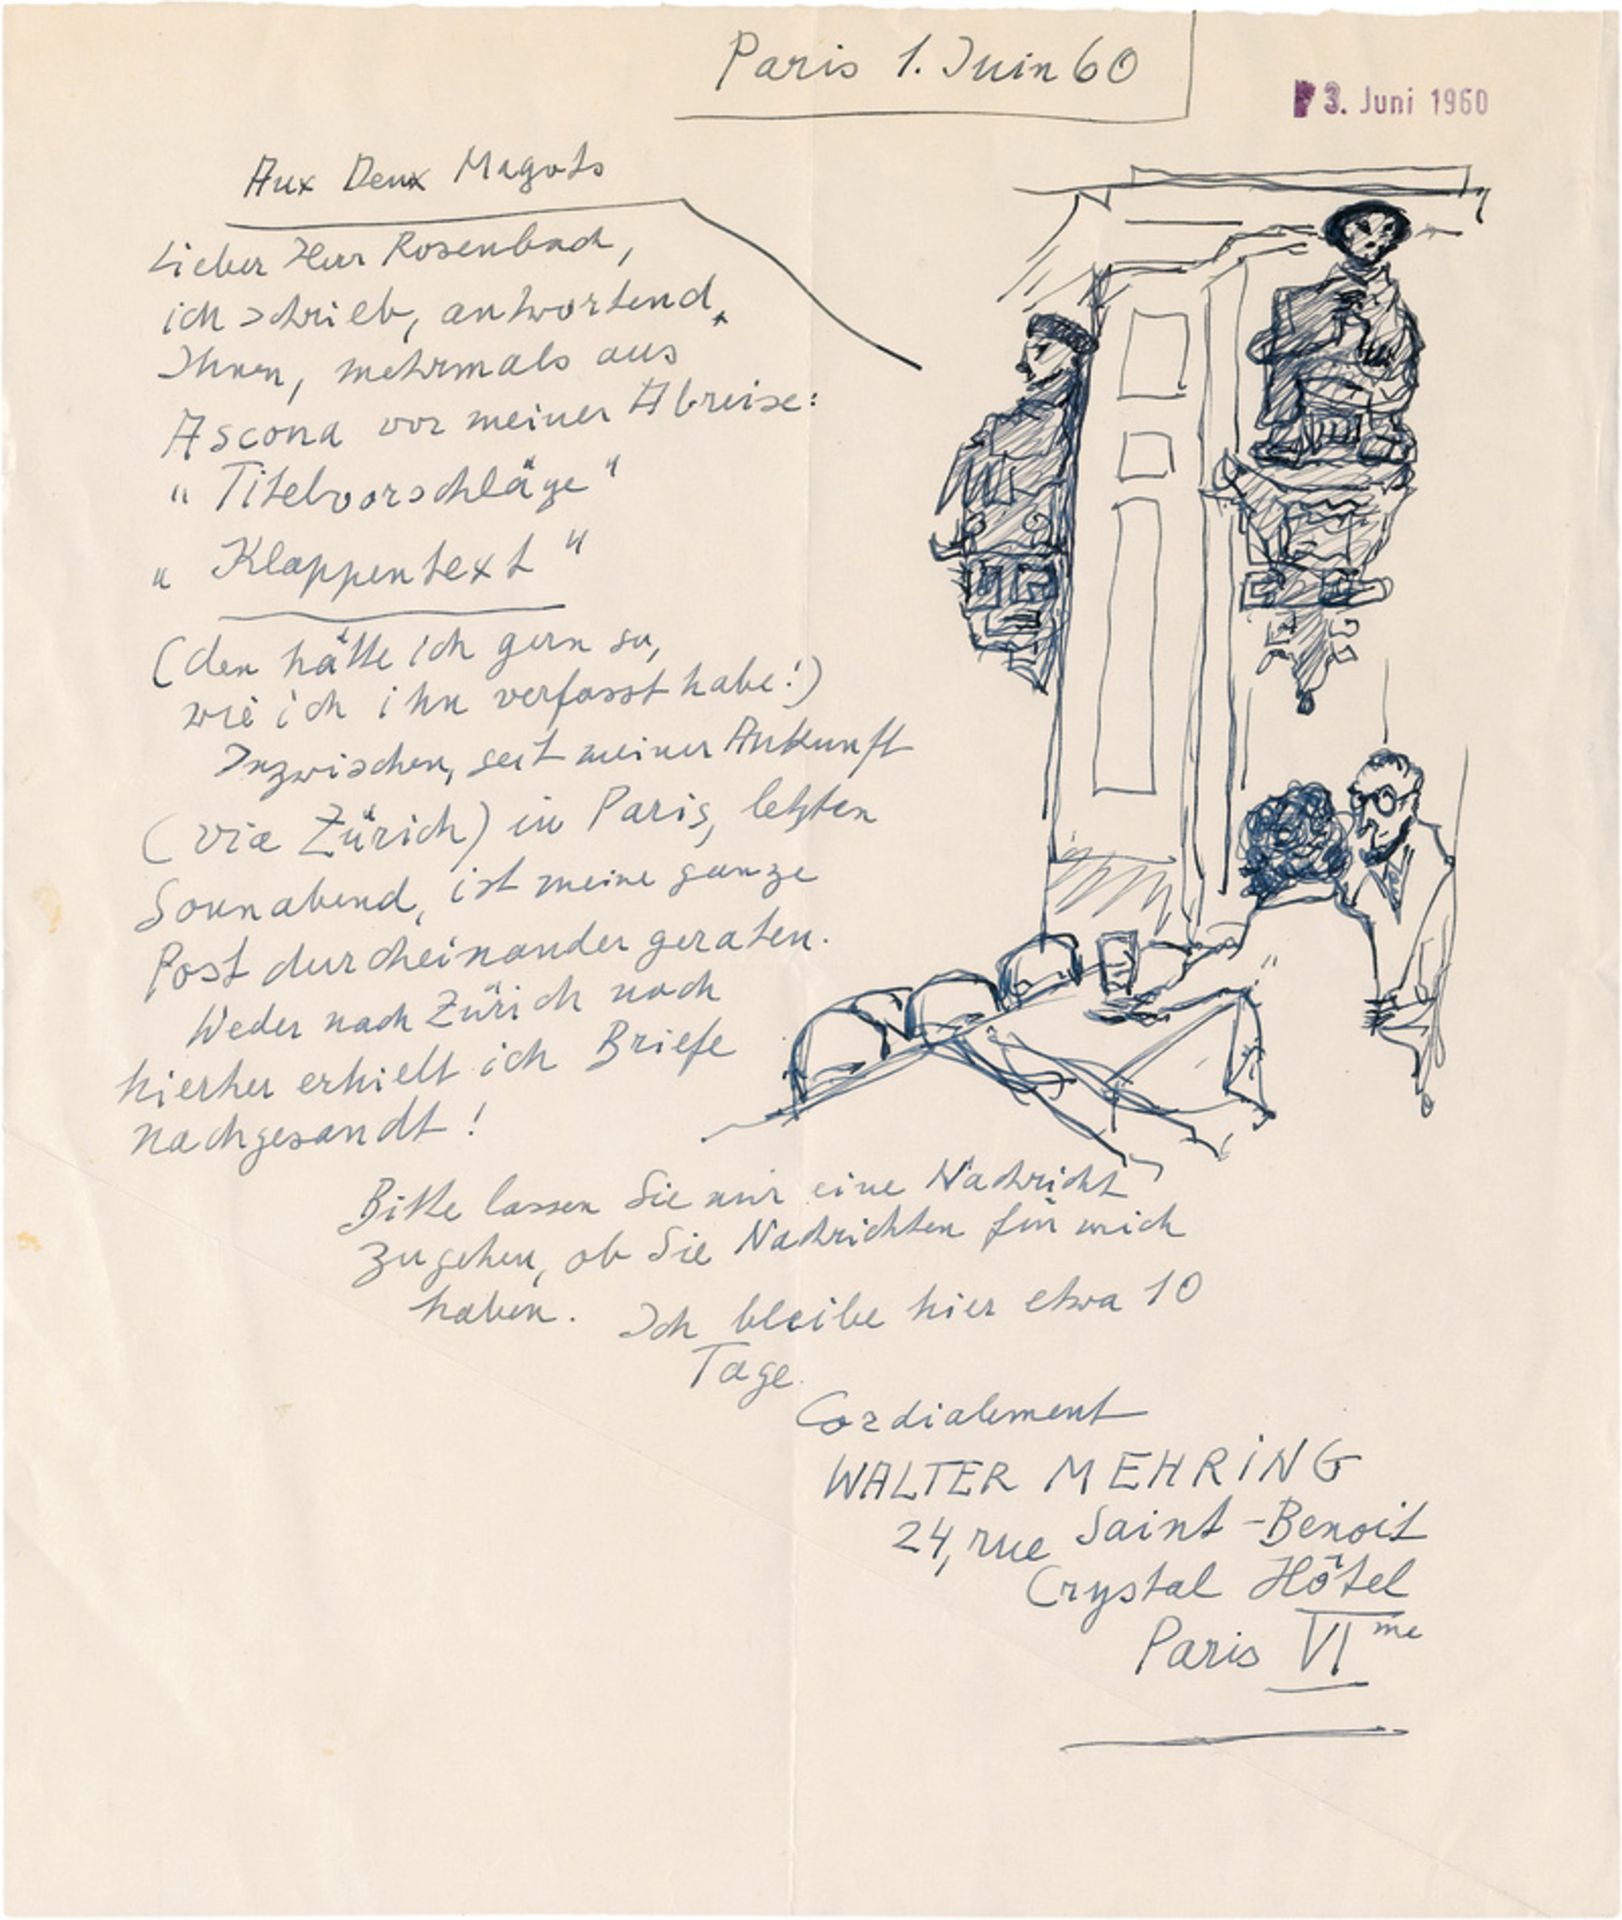 Paris 1. Juin 60
3. Juni 1960
Aux Deux Magots
Lieber Herr Rosenbach,
ich schrieb, antwortend,
Ihnen, mehrmals aus
Ascona vor meiner Abreise:
"Titelvorschläge"
"Klappentext"
(den hätte ich gern so,
wie ich ihn verfasst habe!)
Inzwischen, seit meiner Ankunft
(via Zürich) in Paris, letzten
Sonnabend, ist meine ganze
Post durcheinander geraten.
Weder nach Zürich noch
hierher erhielt ich Briefe
nachgesandt!
Bitte lassen Sie mir eine Nachricht
zugehen, ob Sie Nachrichten für mich
haben. Ich bleibe hier etwa 10
Tage.
Cordialement
WALTER MEHRING
24, rue Saint-Benoit
Crystal Hôtel
Paris VI me